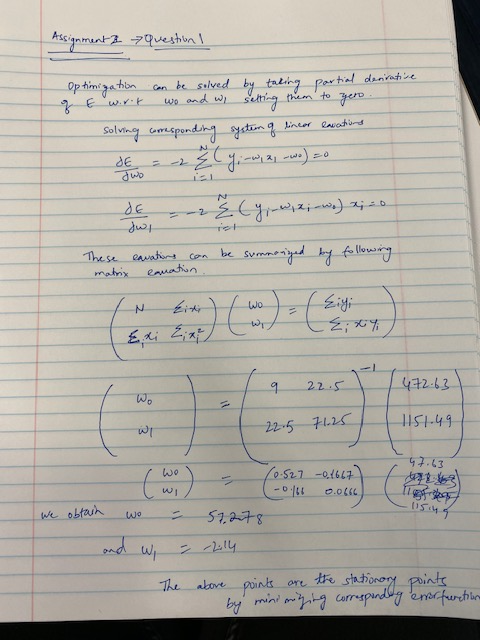 Assignment 2 → Question 1
Optimization can be solved by taking partial derivative
of E w.r.t w0 and w1 setting them to zero.
Solving corresponding system of linear equations
∂E/∂w0 = -2 Σ_{i=1}^{N} (yi - w1xi - w0) = 0
∂E/∂w1 = -2 Σ_{i=1}^{N} (yi - w1xi - w0) xi = 0
These equations can be summarized by following
matrix equation.
( N Σixi ) ( w0 ) = ( Σiyi )
( Σixi Σixi² ) ( w1 ) ( Σi xi yi )
( w0 ) = ( 9 22.5 )⁻¹ ( 472.63 )
( w1 ) ( 22.5 71.25 ) ( 1151.49 )
( w0 ) = ( 0.527 -0.1667 ) ( 47.63 )
( w1 ) ( -0.166 0.0666 ) ( 115.49 )
we obtain w0 = 57.278
and w1 = -2.14
The above points are the stationary points
by minimizing corresponding error function